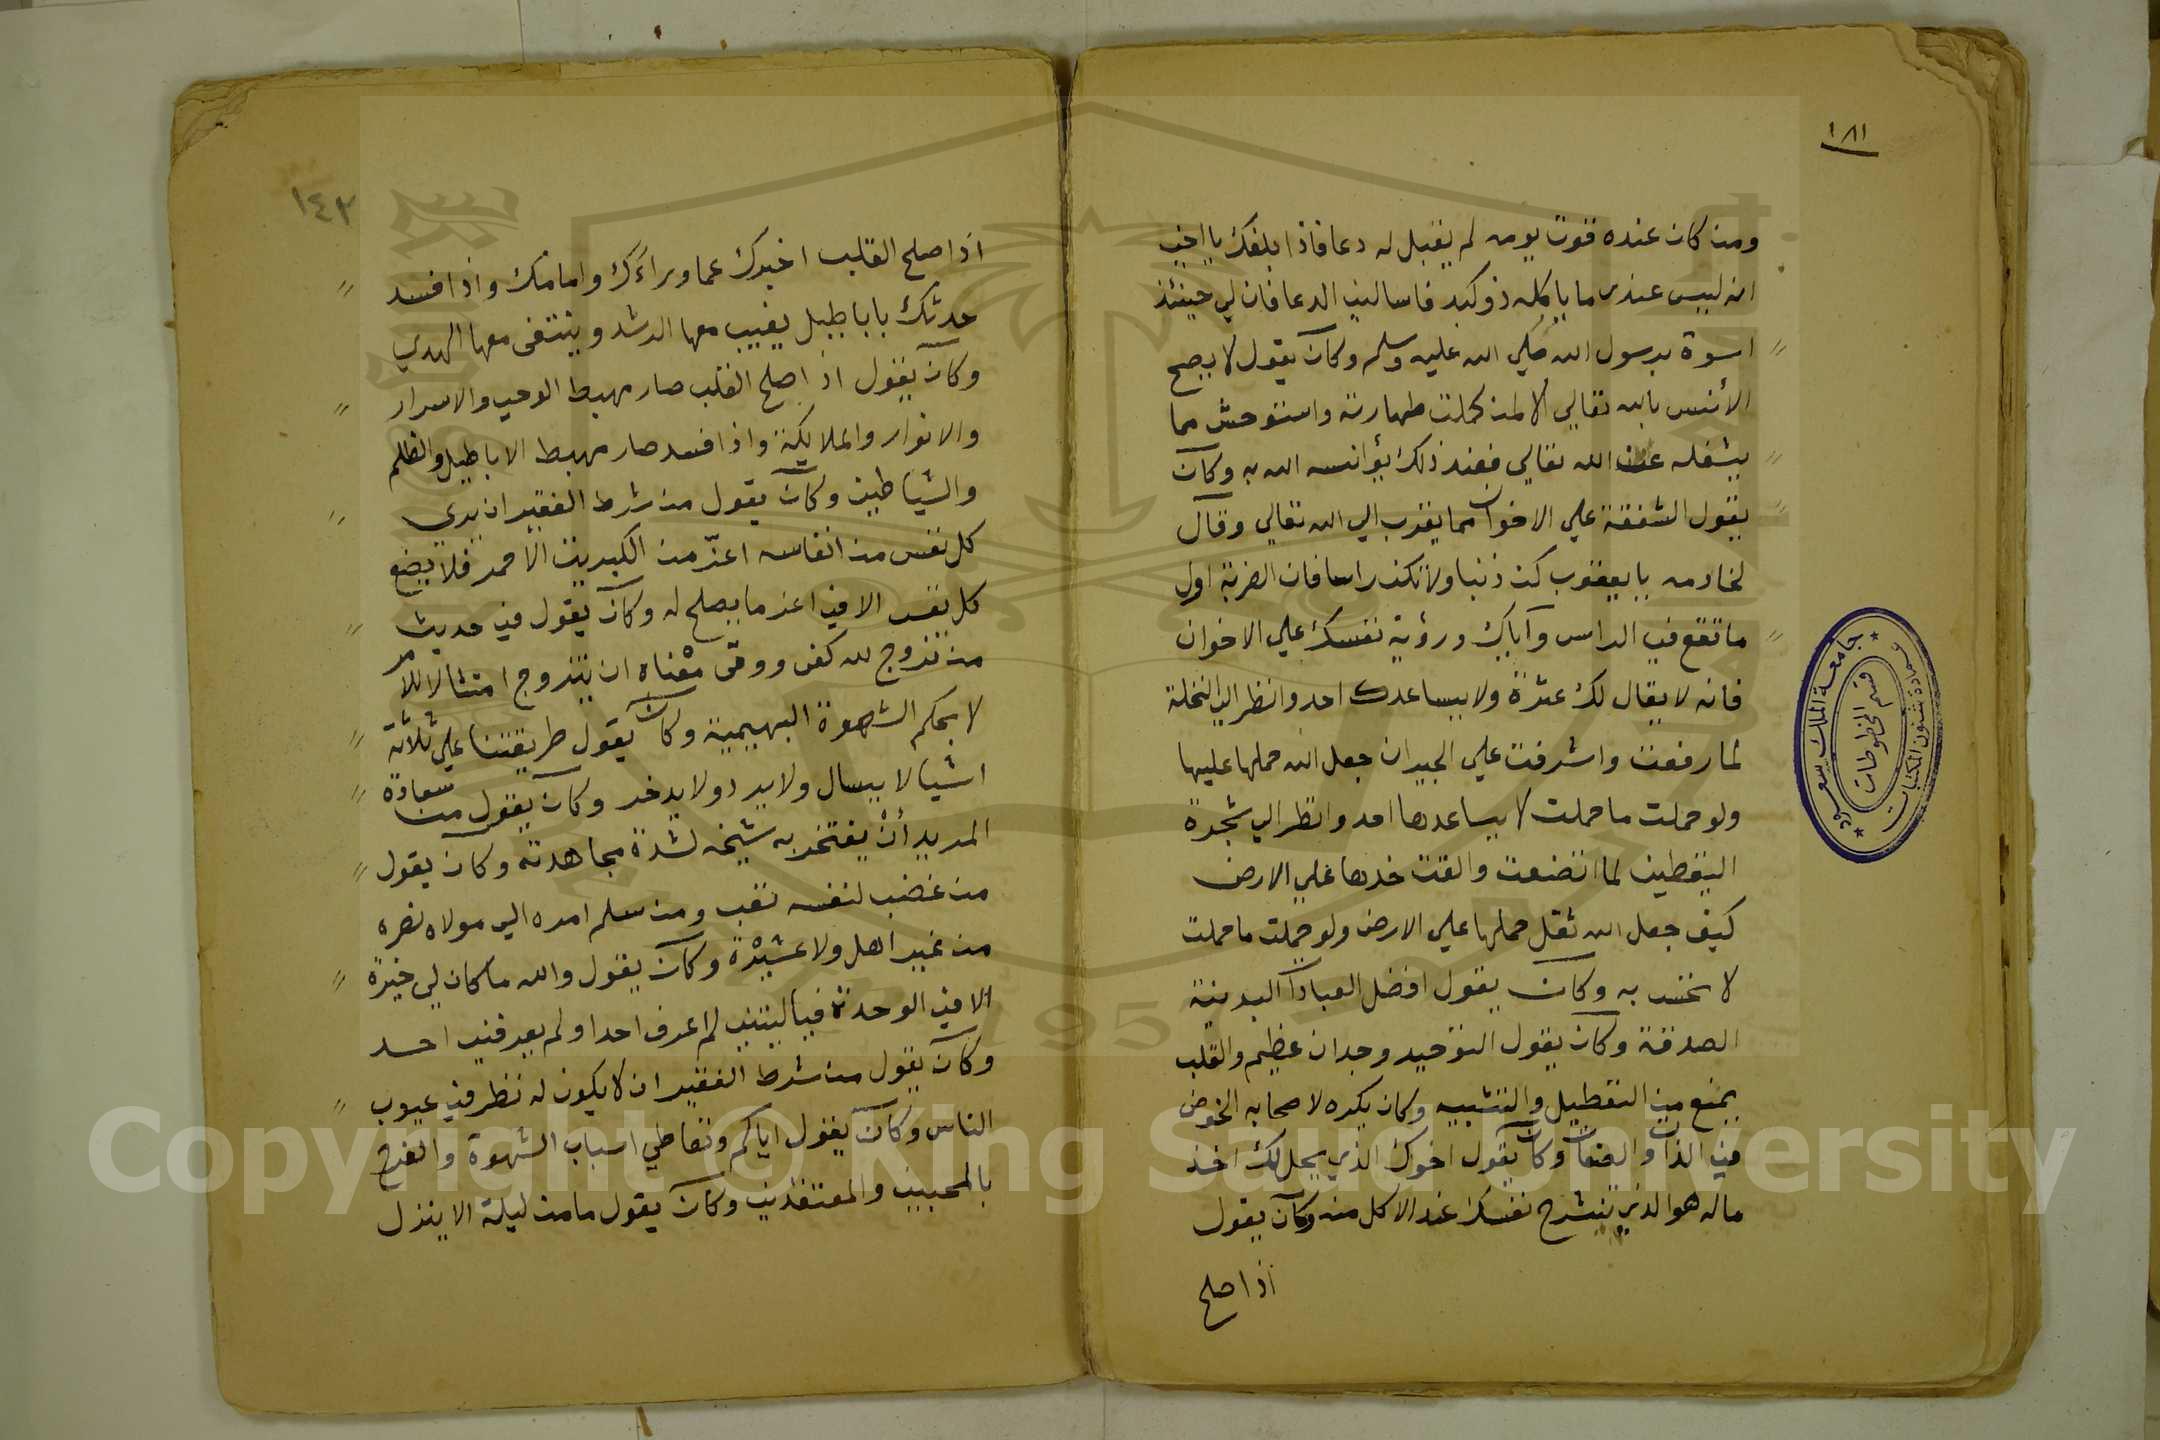 ١٨١
ومن كان عنده قوت يومه لم يقبل له دعا فاذا بلغك يا اخي
انه ليس عندي ما ياكله ذو كبد فاسالني الدعا فان لي حينئذ
اسوة برسول الله صلي الله عليه وسلم وكان يقول لا يصح
الأنس بالله تعالي الا لمن كملت طهارته واستوحش مما
يشغله عن الله تعالي فعند ذلك يؤانسه الله به وكان
يقول الشفقة علي الاخوان مما يقرب الي الله تعالي وقال
لخادمه يا يعقوب كن ذنبا ولا تكن راسا فان الضربة اول
ما تقع في الراس واياك ورؤية نفسك علي الاخوان
فانه لا يقال لك عثرة ولا يساعدك احد وانظر الي النخلة
لما رفعت واشرفت علي الجيران جعل الله حملها عليها
ولو حملت ما حملت لا يساعدها احد وانظر الي شجرة
اليقطين لما اتضعت والقت خدها علي الارض
كيف جعل الله ثقل حملها علي الارض ولو حملت ما حملت
لا تحس به وكان يقول افضل العبادات البدنية
الصدقة وكان يقول التوحيد وجدان عظيم والقلب
يمنع من التعطيل والتشبيه وكان يكره لاصحابه الخوض
في الذات والصفات وكان يقول اخوك الذي يحل لك اخذ
ماله هو الذي ينشرح نفسك عند الاكل منه وكان يقول
اذا صلح
جامعة الملك سعود
عمادة شئون المكتبات
قسم المخطوطات
١٤٢
اذا صلح القلب اخبرك عما وراءك وامامك واذا فسد
حدثك باباطيل يغيب معها الرشد وينتفى معها الهدي
وكان يقول اذا صلح القلب صار مهبط الوحي والاسرار
والانوار والملائكة واذا فسد صار مهبط الاباطيل والظلم
والشياطين وكان يقول من شرط الفقير ان يري
كل نفس من انفاسه اعزّ من الكبريت الأحمر فلا يضع
كل نفس الا في اعز ما يصلح له وكان يقول في حديث
من تزوج لله كفى ووقى معناه ان يتزوج امتثالا للأمر
لا بحكم الشهوة البهيمية وكان يقول طريقتنا علي ثلاثة
اشيا لا يسال ولا يرد ولا يدخر وكان يقول من سعادة
المريد أن يفتخر به شيخه لشدة مجاهدته وكان يقول
من غضب لنفسه تعب ومن سلم امره الي مولاه نصره
من غير اهل ولا عشيرة وكان يقول والله ما كان لي خيرة
الا في الوحدة فياليتني لم اعرف احدا ولم يعرفني احد
وكان يقول من شرط الفقير ان لا يكون له نظر في عيوب
الناس وكان يقول اياكم وتعاطي اسباب الشهوة والفرح
بالمحبين والمعتقدين وكان يقول ما من ليلة الا ينزل
Copyright © King Saud University
1957